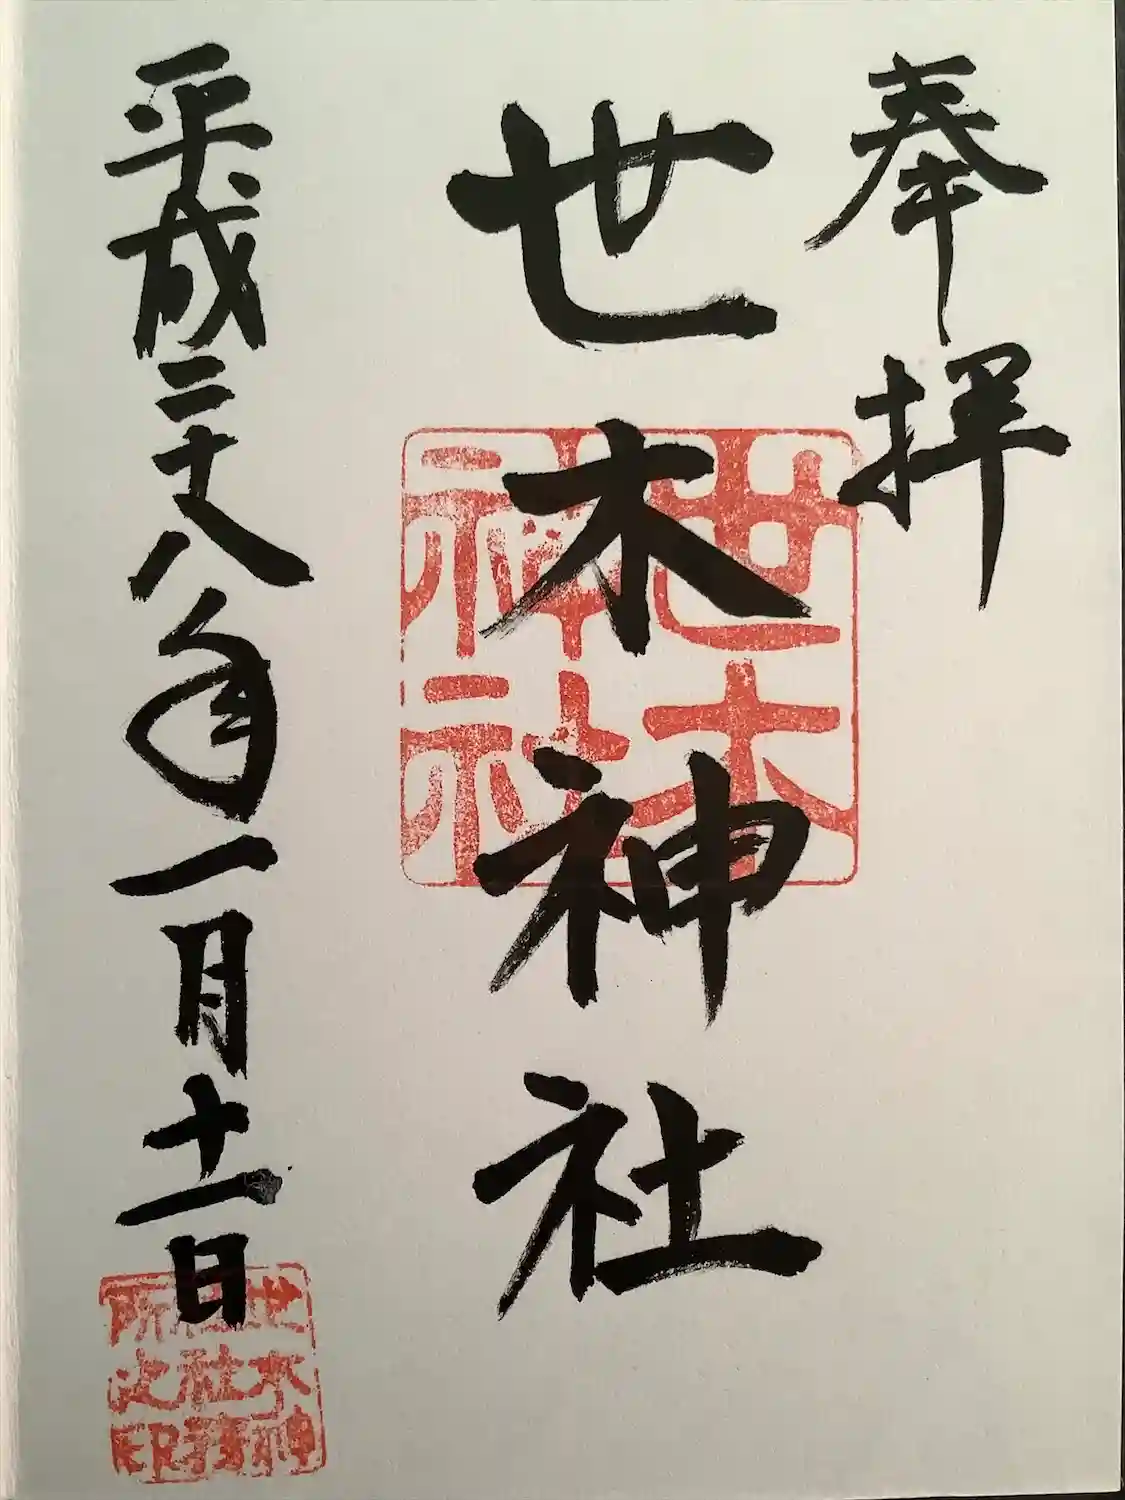 奉拝
世木神社
平成二十八年一月十一日
世木
神社
世木神
社社務
所之印